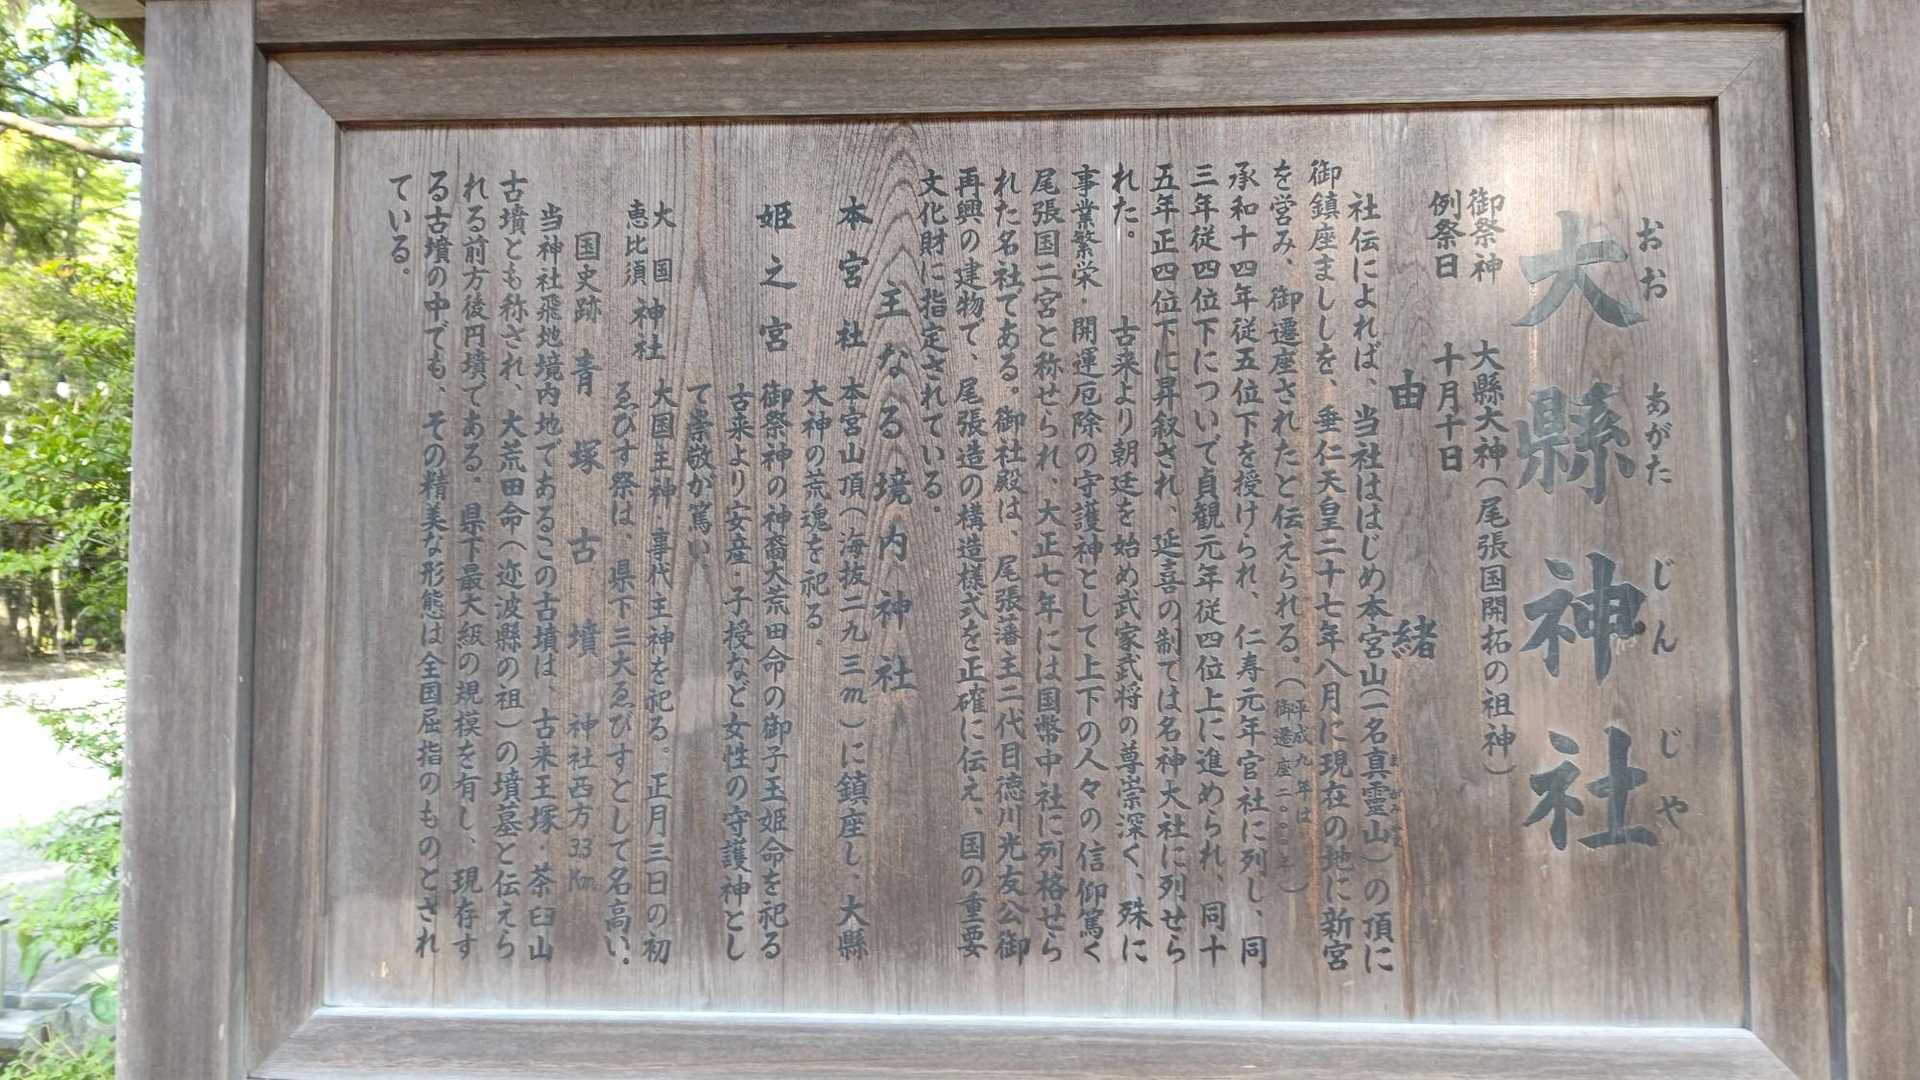 大縣神社
おお あがた じん じゃ
御祭神 大縣大神（尾張国開拓の祖神）
例祭日 十月十日
由緒
社伝によれば、当社ははじめ本宮山（一名真霊山）の頂に
御鎮座ましましを、垂仁天皇二十七年八月に現在の地に新宮
を営み、御遷座されたと伝えられる。（平成九年は、御遷座二〇〇〇年）
承和十四年従五位下を授けられ、仁寿元年官社に列し、同
三年従四位下についで貞観元年従四位上に進められ、同十
五年正四位下に昇叙され、延喜の制では名神大社に列せら
れた。 古来より朝廷を始め武家武将の尊崇深く、殊に
事業繁栄・開運厄除の守護神として上下の人々の信仰篤く
尾張国二宮と称せられ、大正七年には国幣中社に列格せら
れた名社である。御社殿は、尾張藩主二代目徳川光友公御
再興の建物で、尾張造の構造様式を正確に伝え、国の重要
文化財に指定されている。
主なる境内神社
本宮社 本宮山頂（海抜二九三m）に鎮座し、大縣
大神の荒魂を祀る。
姫之宮 御祭神の神裔大荒田命の御子玉姫命を祀る
古来より安産・子授など女性の守護神とし
て崇敬が篤い。
大国恵比須神社 大国主神 事代主神を祀る。正月三日の初
ゑびす祭は、県下三大ゑびすとして名高い。
国史跡 青塚古墳 神社西方3.3Km
当神社飛地境内地であるこの古墳は、古来王塚・茶臼山
古墳とも称され、大荒田命（迩波縣の祖）の墳墓と伝えら
れる前方後円墳である。県下最大級の規模を有し、現存す
る古墳の中でも、その精美な形態は全国屈指のものとされ
ている。